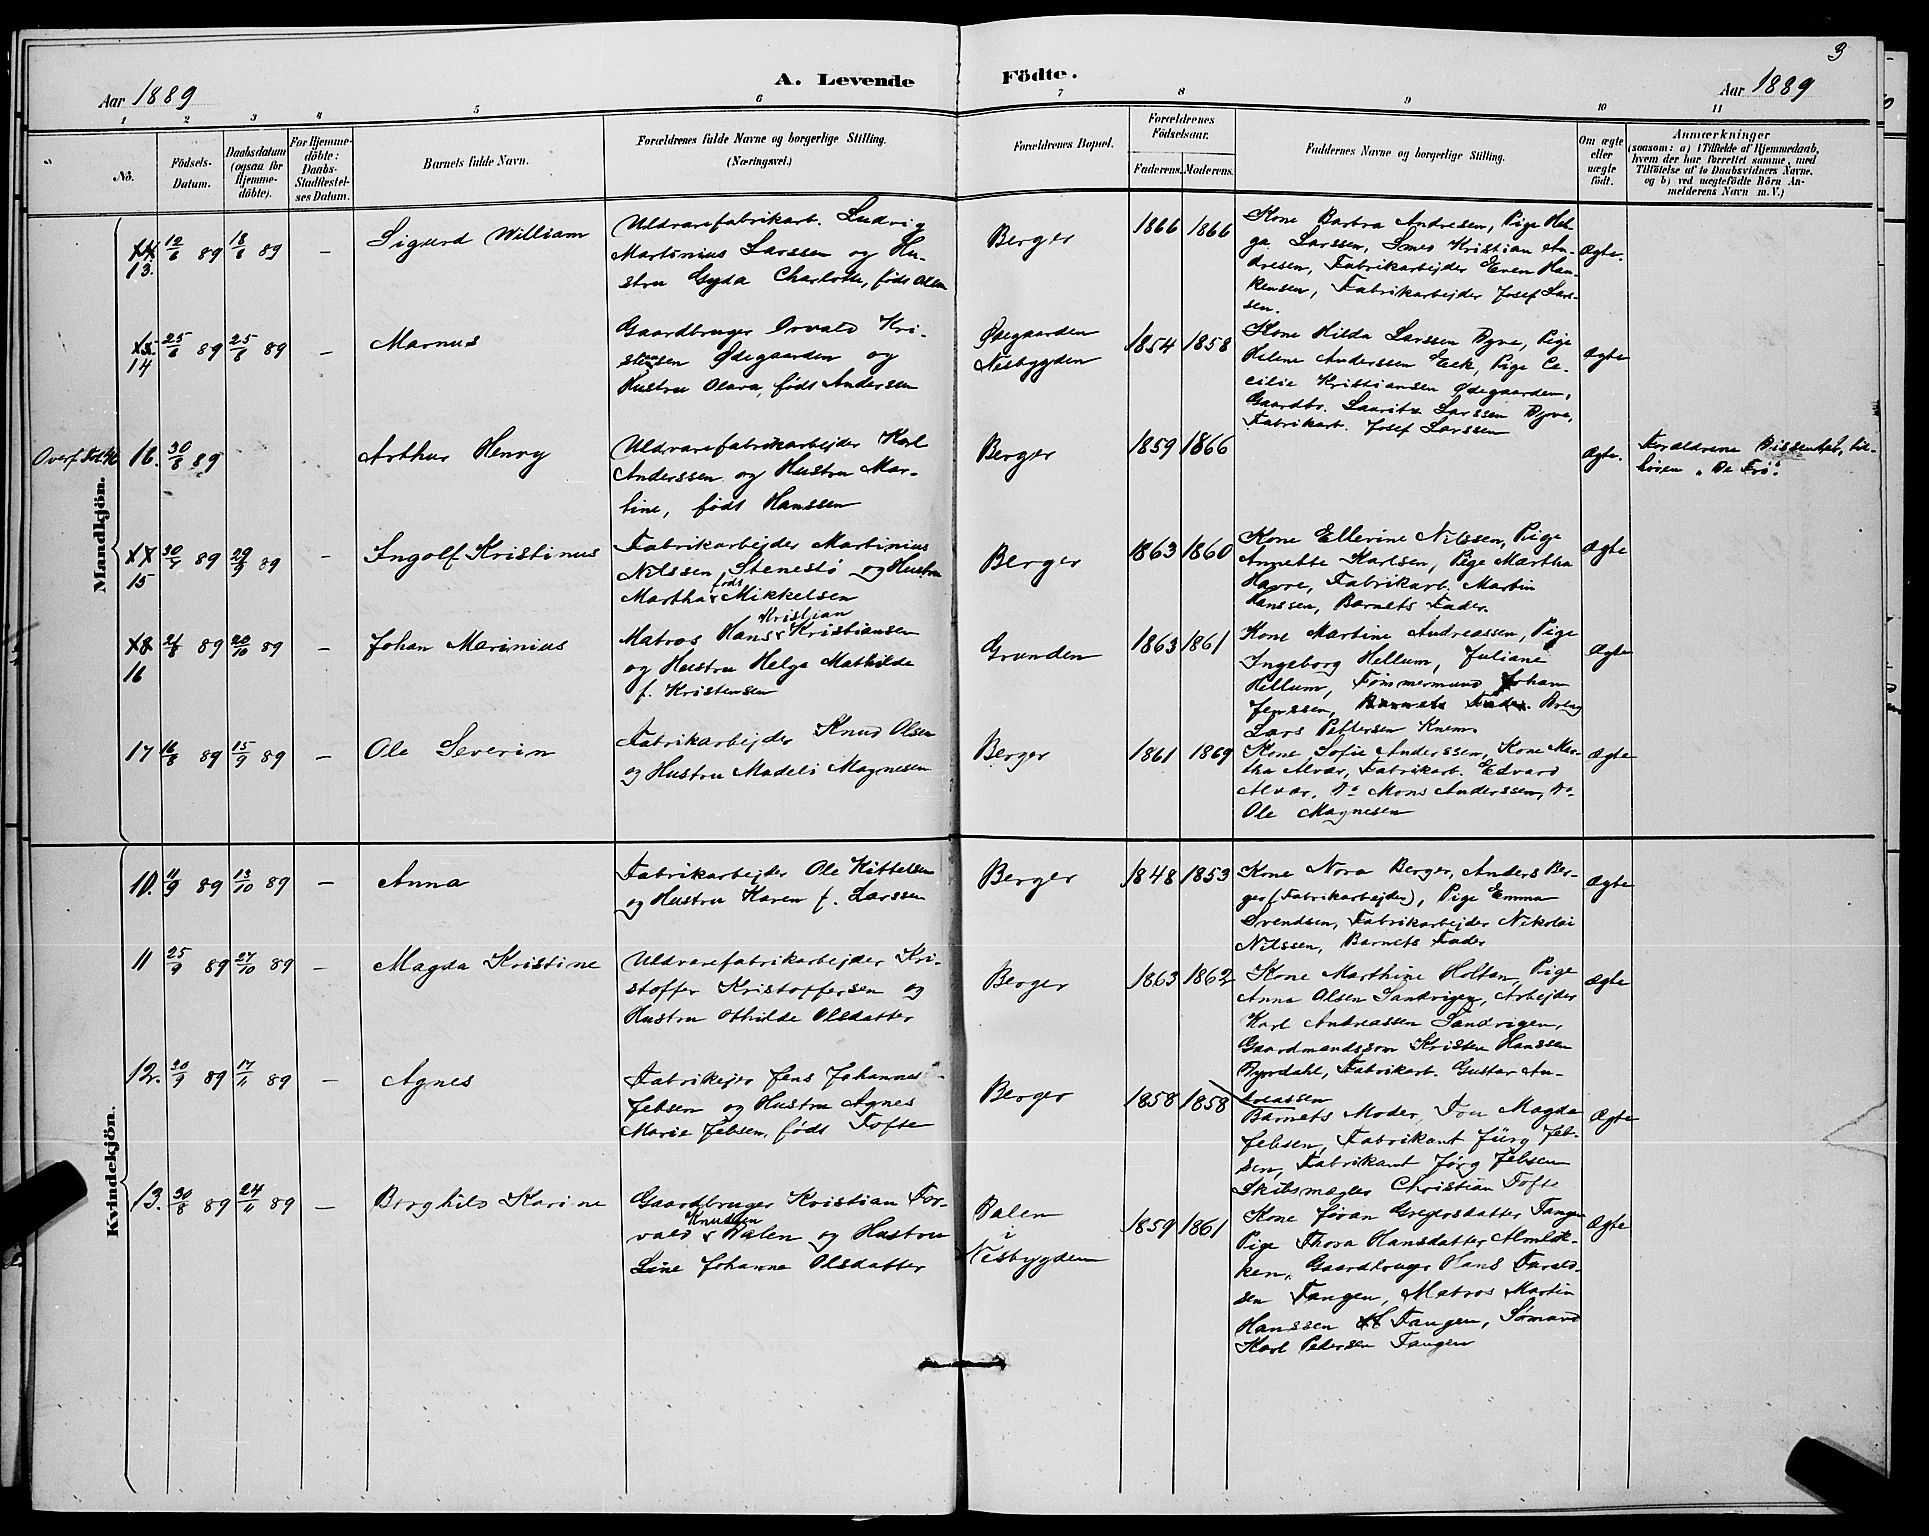 3
Aar 1889
A. Levende Födte.
Aar 1889
1 2 3 4 5 6 7 8 9 10 11
No.
Födsels-
Datum.
Daabsdatum
(ogsaa for
Hjemme-
döbte).
For Hjemme-
döbte:
Daabs-
Stadfæstel-
ses Datum.
Barnets fulde Navn.
Forældrenes fulde Navne og borgerlige Stilling.
(Næringsvei.)
Forældrenes Bopæl.
Forældrenes
Födselsaar.
Faderens. Moderens.
Faddernes Navne og borgerlige Stilling.
Om ægte
eller
uægte
födt.
Anmærkninger
(saasom: a) i Tilfælde af Hjemmedaab,
hvem der har forrettet samme, med
Tilföielse af to Daabsvidners Navne.
og b) ved uægtefödte Börn An-
melderens Navn m. V.)
Mandkjön.
14
13.
12/6 89 18/8 89 –
Sigurd William
Uldvarefabrikarb. Ludvig
Martinius Larssen og Hu-
stru Gyda Charlotte, født Olsen
Berger
1866 1866
Kone Barbra Andresen, Pige Hel-
ga Larssen, Smed Kristian An-
dresen, Fabrikarbejder Even Haa-
kensen, Fabrikarbejder Josef Lars-
sen.
Ægte.
15
14
25/6 89 25/8 89 –
Marnus
Gaardbruger Osvald Kri-
stensen Ødegaarden og
Hustru Olava, født Andersen
Ødegaarden
Nesbygden
1854 1858
Kone Hilda Larssen Dyve, Pige
Helene Anderssen Eek, Pige Ce-
cilie Kristiansen Ødegaarden,
Gaardbr. Lauritz Larssen Dyve,
Fabrikarb. Josef Larssen
Ægte
16. 30/8 89
Arthur Henry
Uldvarefabrikarbejder Karl
Anderssen og Hustru Mar-
tine, født Hanssen
Berger
1859 1866
Ægte.
Forældrene Dissentere, til-
hører „De Frie“.
17
15
30/7 89 29/9 89 –
Ingolf Kristinus
Fabrikarbejder Martinius
Nilssen Stenestø og Hustru
født
Martha Mikkelsen
Berger
1863 1860
Kone Ellerine Nilssen, Pige
Annette Karlsen, Pige Martha
Havre, Fabrikarb. Martin
Hanssen, Barnets Fader.
Ægte
18
16
21/8 89 20/10 89 –
Johan Marinius
Kristian
Matros Hans Kristiansen
og Hustru Helga Mathilde
f. Kristensen
Grunden
1863 1861
Kone Martine Andreassen, Pige
Ingeborg Hellum, Juliane
Hellum, Tømmermand Johan
Jenssen, Barnets Fader.
Lars Pettersen Knem
Ægte
17 16/8 89 15/9 89 –
Ole Severin
Fabrikarbejder Knud Olsen
og Hustru Madeli Magnesen
Berger
1861 1869
Kone Sofie Anderssen, Kone Mar-
tha Alvær, Fabrikarb. Edvard
Alvær, Do Mons Anderssen, Do
Ole Magnesen
Ægte
Kvindekjön.
10. 11/9 89 13/10 89 –
Anna
Fabrikarbejder Ole Kittelsen
og Hustru Karen f. Larssen
Berger
1848 1853
Kone Nora Berger, Anders Ber-
ger (Fabrikarbejder), Pige Emma
Svendsen, Fabrikarbejder Nikolai
Nilssen, Barnets Fader
Ægte
11 25/9 89 27/10 89 –
Magda Kristine
Uldvarefabrikarbejder Kri-
stoffer Kristoffersen og
Hustru Othilde Olsdatter
Berger
1863 1862
Kone Marthine Holtan, Pige
Anna Olsen Sandvigen, Arbejder
Karl Andreassen Sandvigen,
Gaardmandssøn Kristen Hanssen
Dyrdahl, Fabrikarb. Gustav An-
dreassen
Ægte
12. 20/9 89 17/11 89 –
Agnes
Fabrikejer Jens Johannes
Jebsen og Hustru Agnes
Marie Jebsen, født Tofte
Berger
1858 1858
Barnets Moder, Fru Magda
Jebsen, Fabrikant Jürg Jeb-
sen, Fabrikant Jørg Jebsen
Skibsmægler Christian Tofte
Ægte
13. 30/8 89 24/11 89 –
Borghild Karine
Gaardbruger Kristian Tor-
Knudsen
vald Balen og Hustru
Line Johanne Olsdatter
Balen
i
Nesbygden
1859 1861
Kone Jøran Gregersdatter Tangen
Pige Thora Hansdatter
Gaardbruger Hans Tarald-
sen Tangen, Matros Martin
Hanssen Tangen, Sømand
Karl Pedersen Tangen
Ægte